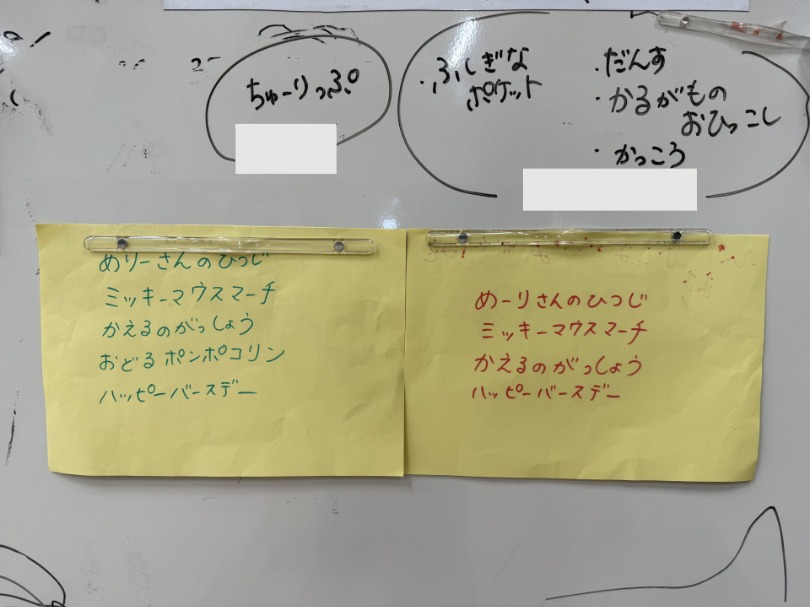 ちゅーりっぷ
・ふしぎな
ポケット
・だんす
・かるがもの
おひっこし
・かっころ
めりーさんのひつじ
ミッキーマウスマーチ
かえるのがっしょう
おどるポンポコリン
ハッピーバースデー
めーりさんのひつじ
ミッキーマウスマーチ
かえるのがっしょう
ハッピーバースデー